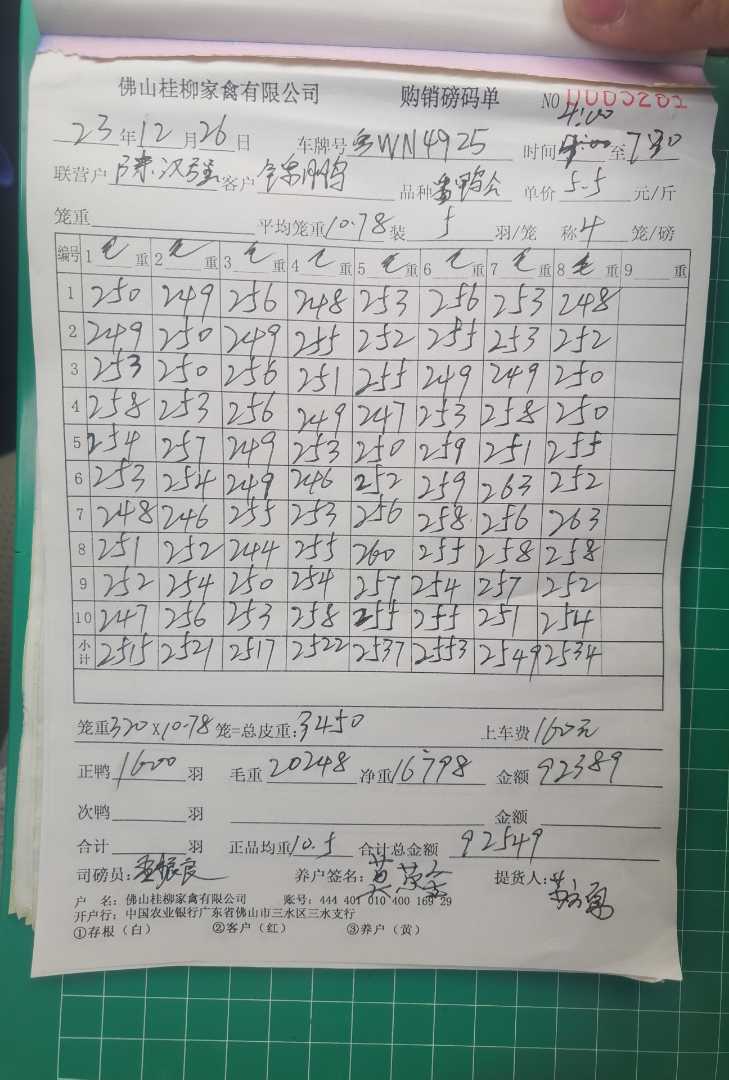 佛山桂柳家禽有限公司 购销磅码单 NO 0003202
4:00
23年12月26日 车牌号 WN4925 时间 至 7:30
联营户 陈汉强 客户 品种 单价 5.5 元/斤
笼重 平均笼重 10.78 装 5 羽/笼 称 4 笼/磅
编号 1 毛 重 2 毛 重 3 毛 重 4 毛 重 5 毛 重 6 毛 重 7 毛 重 8 毛 重 9 重
1 250 249 256 248 253 256 253 248
2 249 250 249 255 252 255 253 252
3 253 250 256 251 255 249 249 250
4 258 253 256 249 247 253 258 250
5 254 257 249 253 250 259 251 255
6 253 254 249 246 252 259 263 252
7 248 246 255 253 256 258 256 263
8 251 252 244 255 260 255 258 258
9 252 254 250 254 257 254 257 252
10 247 256 253 258 255 255 251 254
小计 2515 2521 2517 2522 2537 2553 2549 2534
笼重 320 X 10.78 笼=总皮重: 3450 上车费 160元
正鸭 1600 羽 毛重 20248 净重 16798 金额 92389
次鸭 羽 金额
合计 羽 正品均重 10.5 合计总金额 92549
司磅员: 养户签名: 提货人:
户 名: 佛山桂柳家禽有限公司 账号: 444 401 010 400 169 29
开户行: 中国农业银行广东省佛山市三水区三水支行
①存根（白） ②客户（红） ③养户（黄）